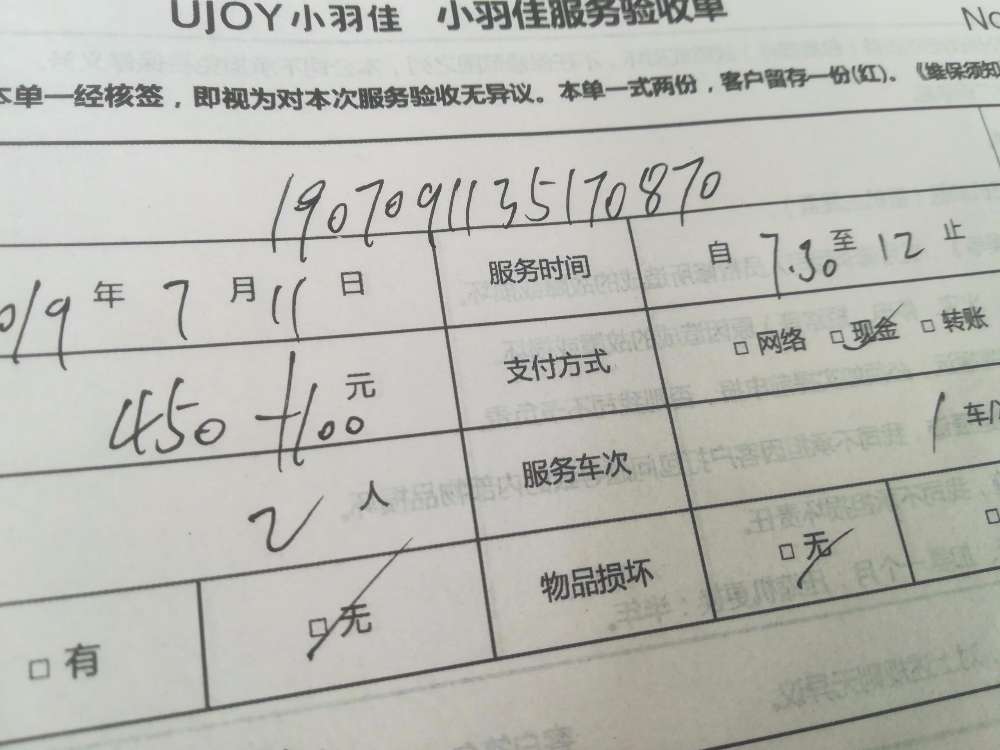 UJOY小羽佳 小羽佳服务验收单 No
本单一经核签，即视为对本次服务验收无异议。本单一式两份，客户留存一份(红)。《维保须知
1907091135170870
019年7月11日 服务时间 自7.30至12止
450+100元 支付方式 □网络 □现金 □转账
2人 服务车次 1车/
□有 □无 物品损坏 □无 □